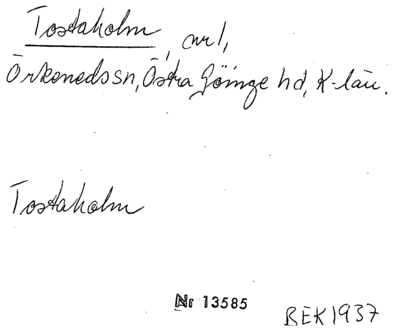 Tostaholm, avl,
Örkenedssn, Östra Göinge hd, K-län.
Tostaholm
Nr 13585
BEK1937